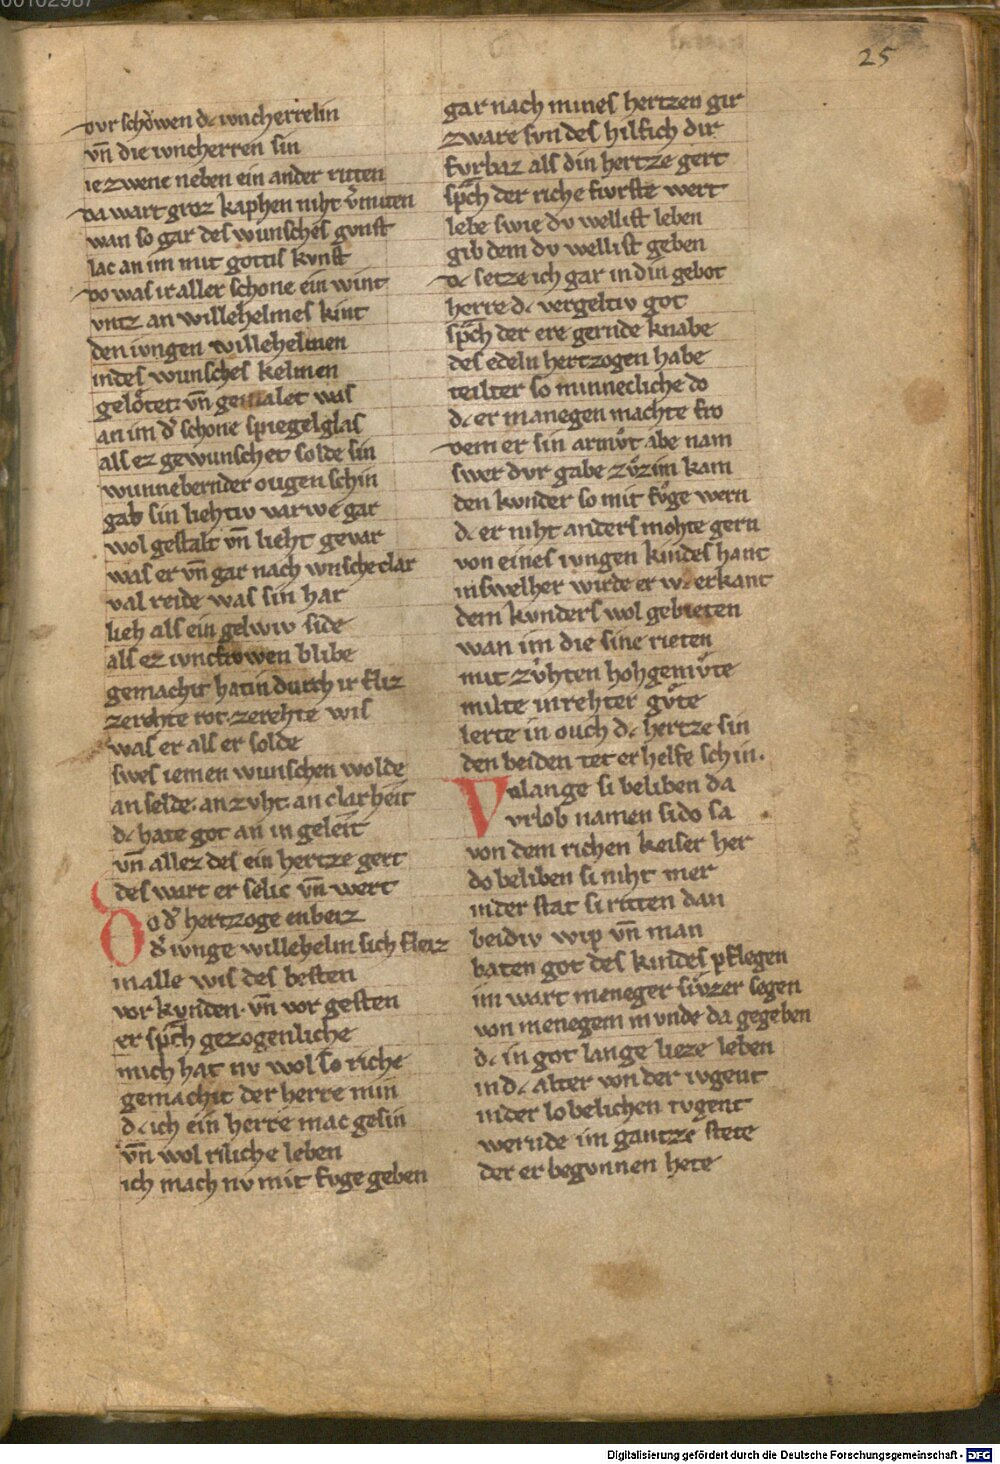 25
dvr schöwen dc iuncherrelin
vn̄ die iuncherren sin
ie zwene neben ein ander ritten
da wart groz kaphen niht v̓miten
wan so gar des wunsches gunst
lac an im mit gottis kunst
do was ir aller schone ein wint
vntz an willehelmes kint
den iungen willehelmen
in des wunsches
gelötet vn̄ gemalet was
an im d̓ schone spiegelglas
als ez gewunschet solde sin
wunnebernder ougen schin
gab sin liehtiv varwe gar
wol gestalt vn̄ lieht gevar
was er vn̄ gar nach wnsche clar
val reide was sin har
lieh als ein gelwiv side
als ez iuncfrowen blibe
gemachit hatin durch ir fliz
zerehte rot. zerehte wis
was er als er solde
swes iemen wunschen wolde
an selde. an zvht. an clarheit
dc hate got an in geleit
vn̄ allez des ein hertze gert
des wart er selic vn̄ wert
Do d̓ hertzoge enbeiz
d̓ iunge willehelm sich fleiz
in alle wis des besten
vor kunden. vn̄ vor gesten
er sp̄ch gezogenliche
mich hat nv wol so riche
gemachit der herre min
dc ich ein herre mac gesin
vn̄ wol riliche leben
ich mach nv mit fvge geben
gar nach mines hertzen gir
zware svn des hilf ich dir
fvrbaz als din hertze gert
sp̄ch der riche fvrste wert
lebe swie dv wellist leben
gib dem dv wellist geben
dc setze ich gar in din gebot
herre dc vergeltiv got
sp̄ch der ere gernde knabe
des edeln hertzogen habe
teilter so minnecliche do
dc er manegen machte fro
dem er sin armůt abe nam
swer dvr gabe zůzim kam
den kvnder so mit fůge wern
dc er niht anders mohte gern
von eines iungen kindes hant
in swelher wirde er wc erkant
dem kvnders wol gebieten
wan im die sine rieten
mit zůhten hohgemůte
milte in rehter gůte
lerte in ouch dc hertze sin
den beiden tet er helfe schin.
Volange si beliben da
vrlob namen si do sa
von dem richen keiser her
do beliben si niht mer
in der stat si ritten dan
beidiv wip vn̄ man
baten got des kindes pflegen
im wart meneger sůzer segen
von menegem munde da gegeben
dc in got lange lieze leben
in dc alter von der ivgent
in der lobelichen tvgent
wernde im gantze stete
der er begunnen hete
Digitalisierung gefördert durch die Deutsche Forschungsgemeinschaft - DFG